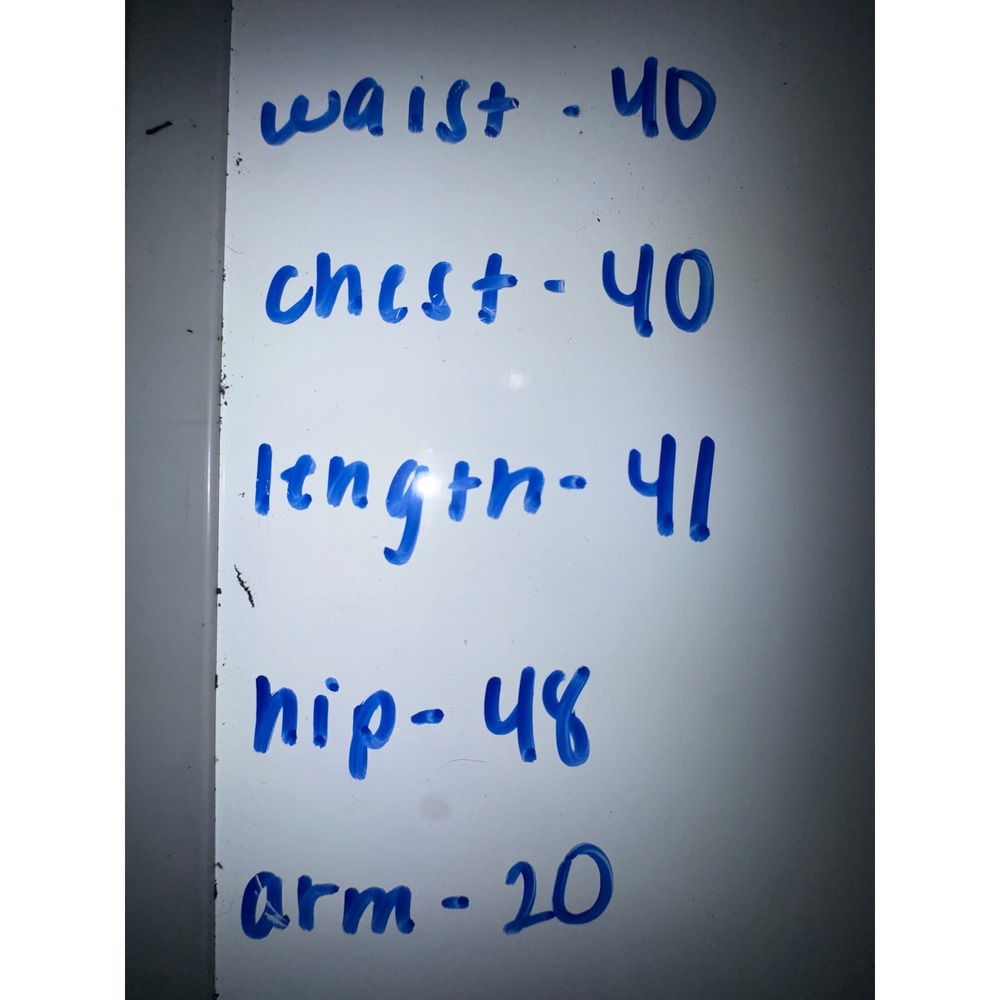 waist - 40
chest - 40
length - 41
hip - 48
arm - 20